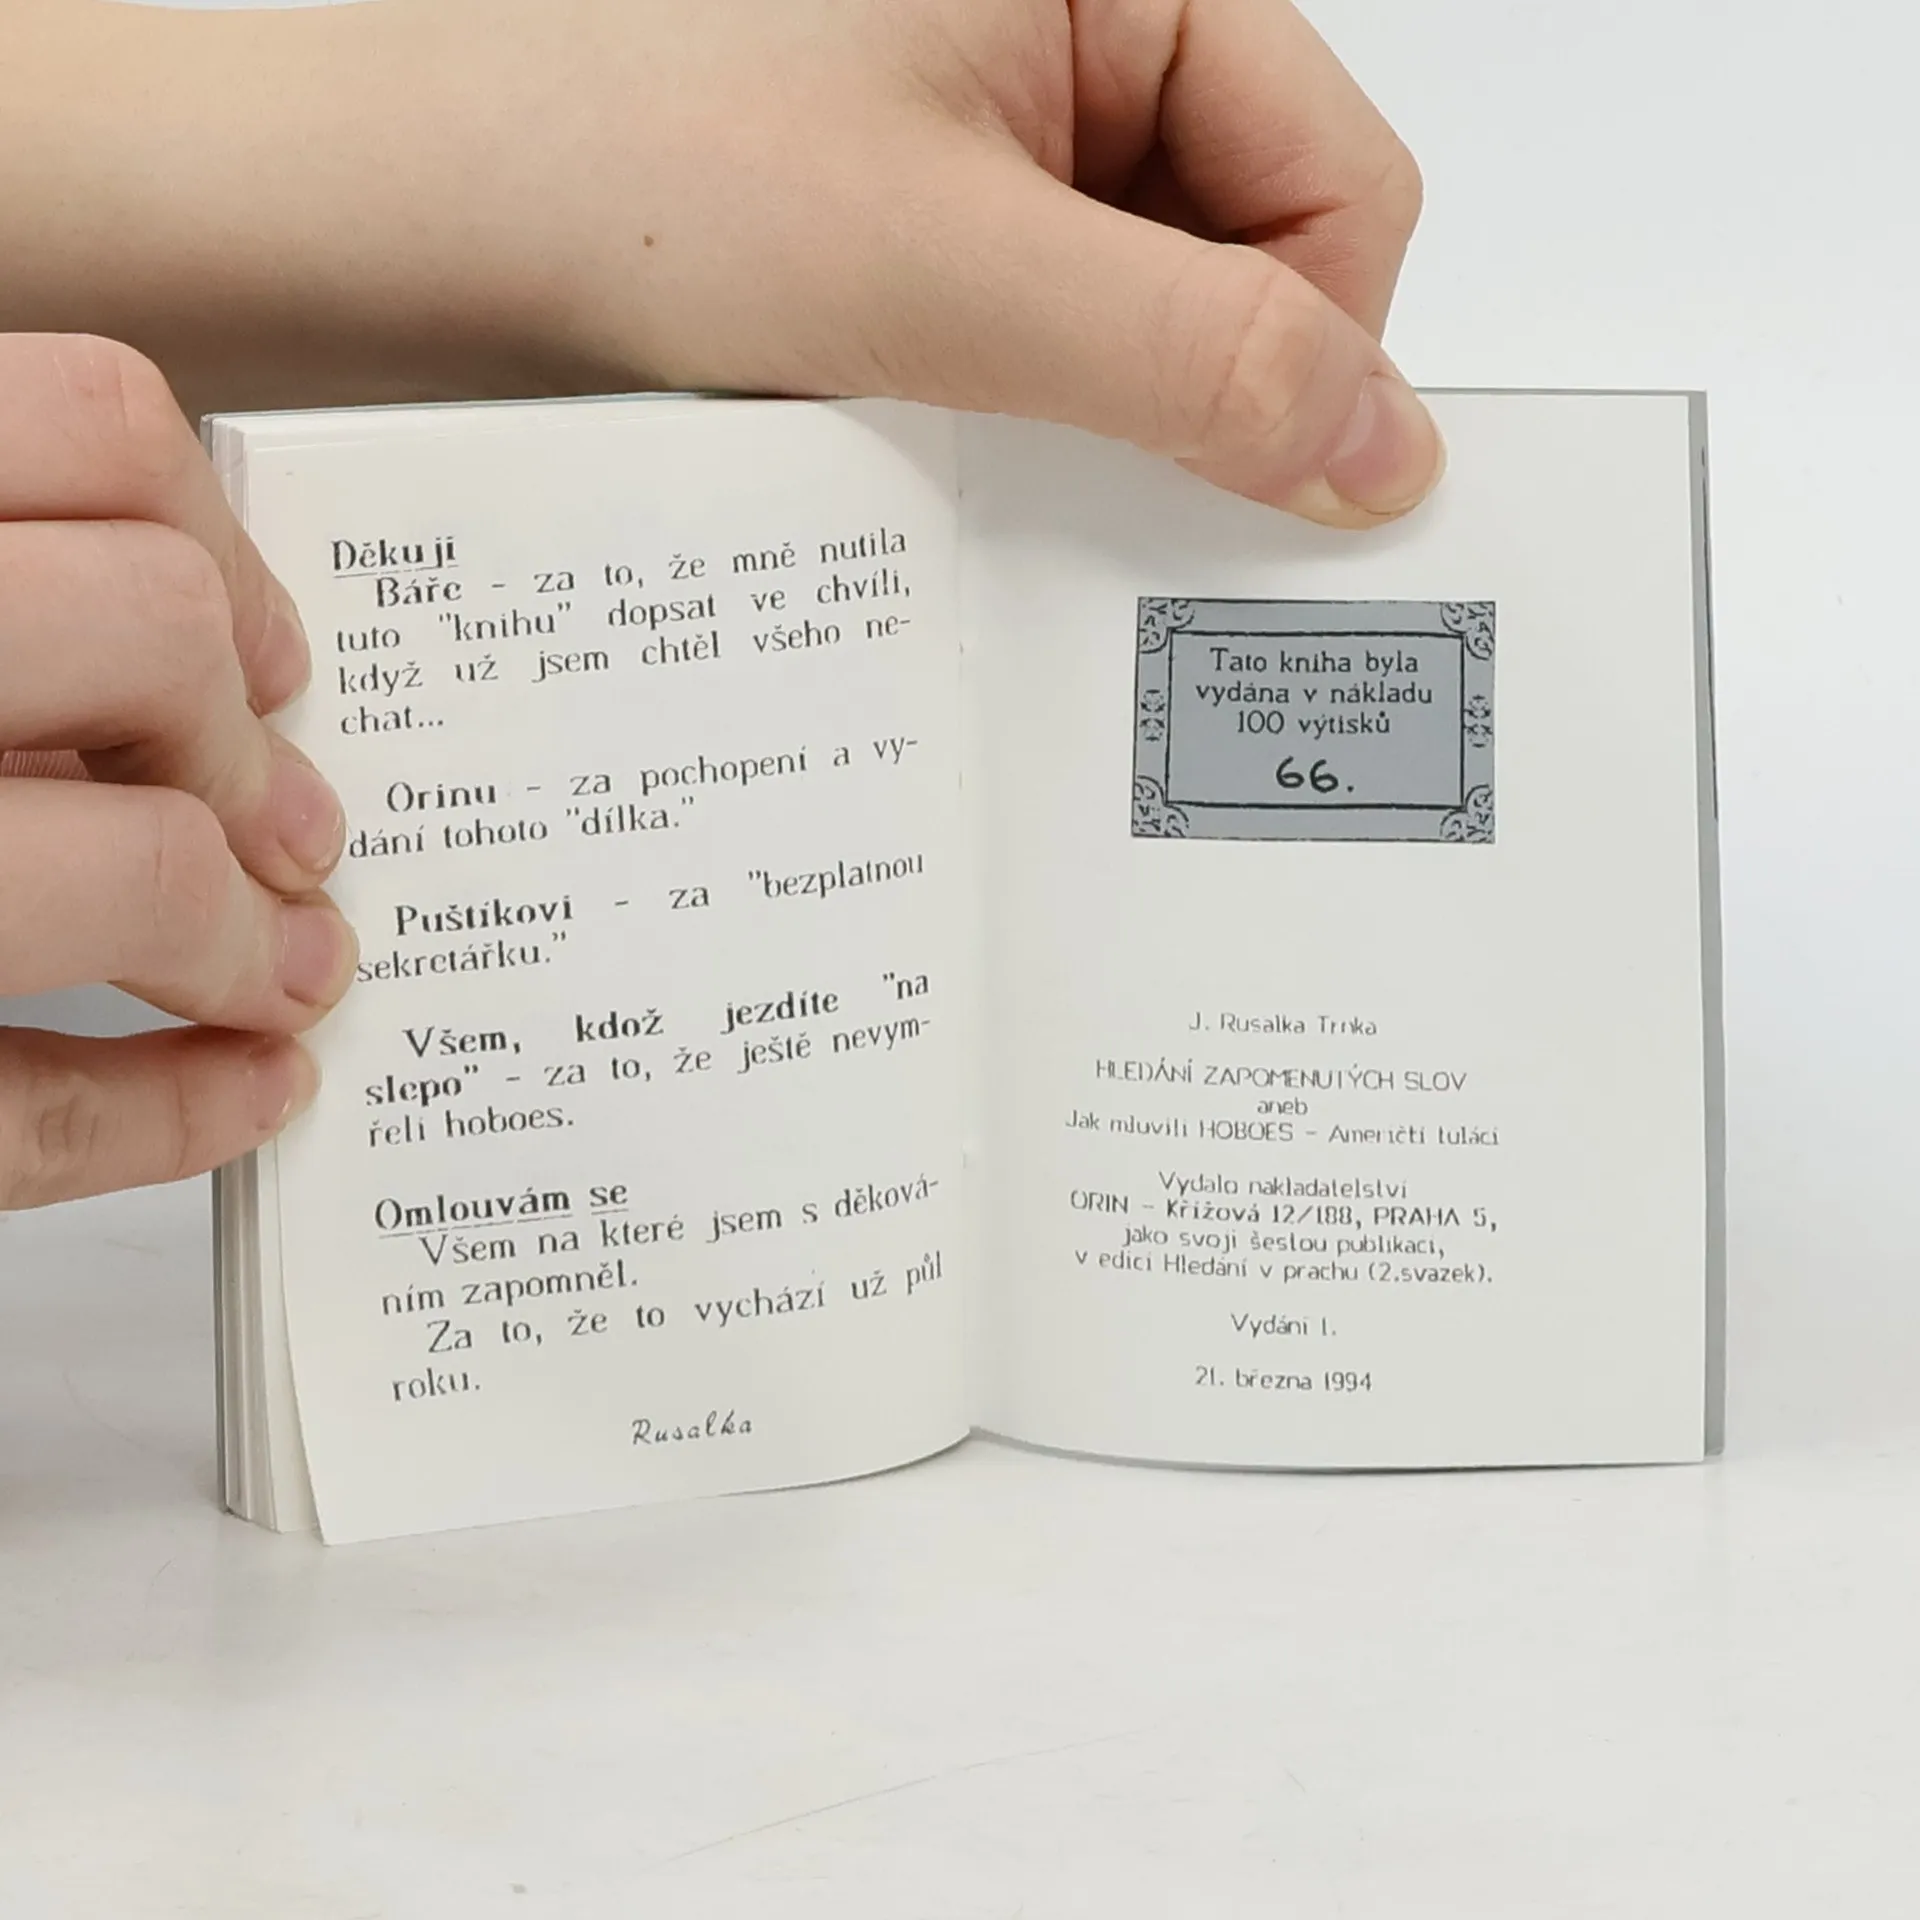 Děkuji
Báře - za to, že mně nutila
tuto "knihu" dopsat ve chvíli,
když už jsem chtěl všeho ne-
chat...
Orinu - za pochopení a vy-
dání tohoto "dílka."
Puštíkovi - za "bezplatnou
sekretářku."
Všem, kdož jezdíte "na
slepo" - za to, že ještě nevym-
řeli hoboes.
Omlouvám se
Všem na které jsem s děková-
ním zapomněl.
Za to, že to vychází už půl
roku.
Rusalka
Tato kniha byla
vydána v nákladu
100 výtisků
66.
J. Rusalka Trnka
HLEDÁNÍ ZAPOMENUTÝCH SLOV
aneb
Jak mluvili HOBOES - Američtí tuláci
Vydalo nakladatelství
ORIN - Křížová 12/188, PRAHA 5,
jako svoji šestou publikaci,
v edici Hledání v prachu (2.svazek).
Vydání I.
21. března 1994